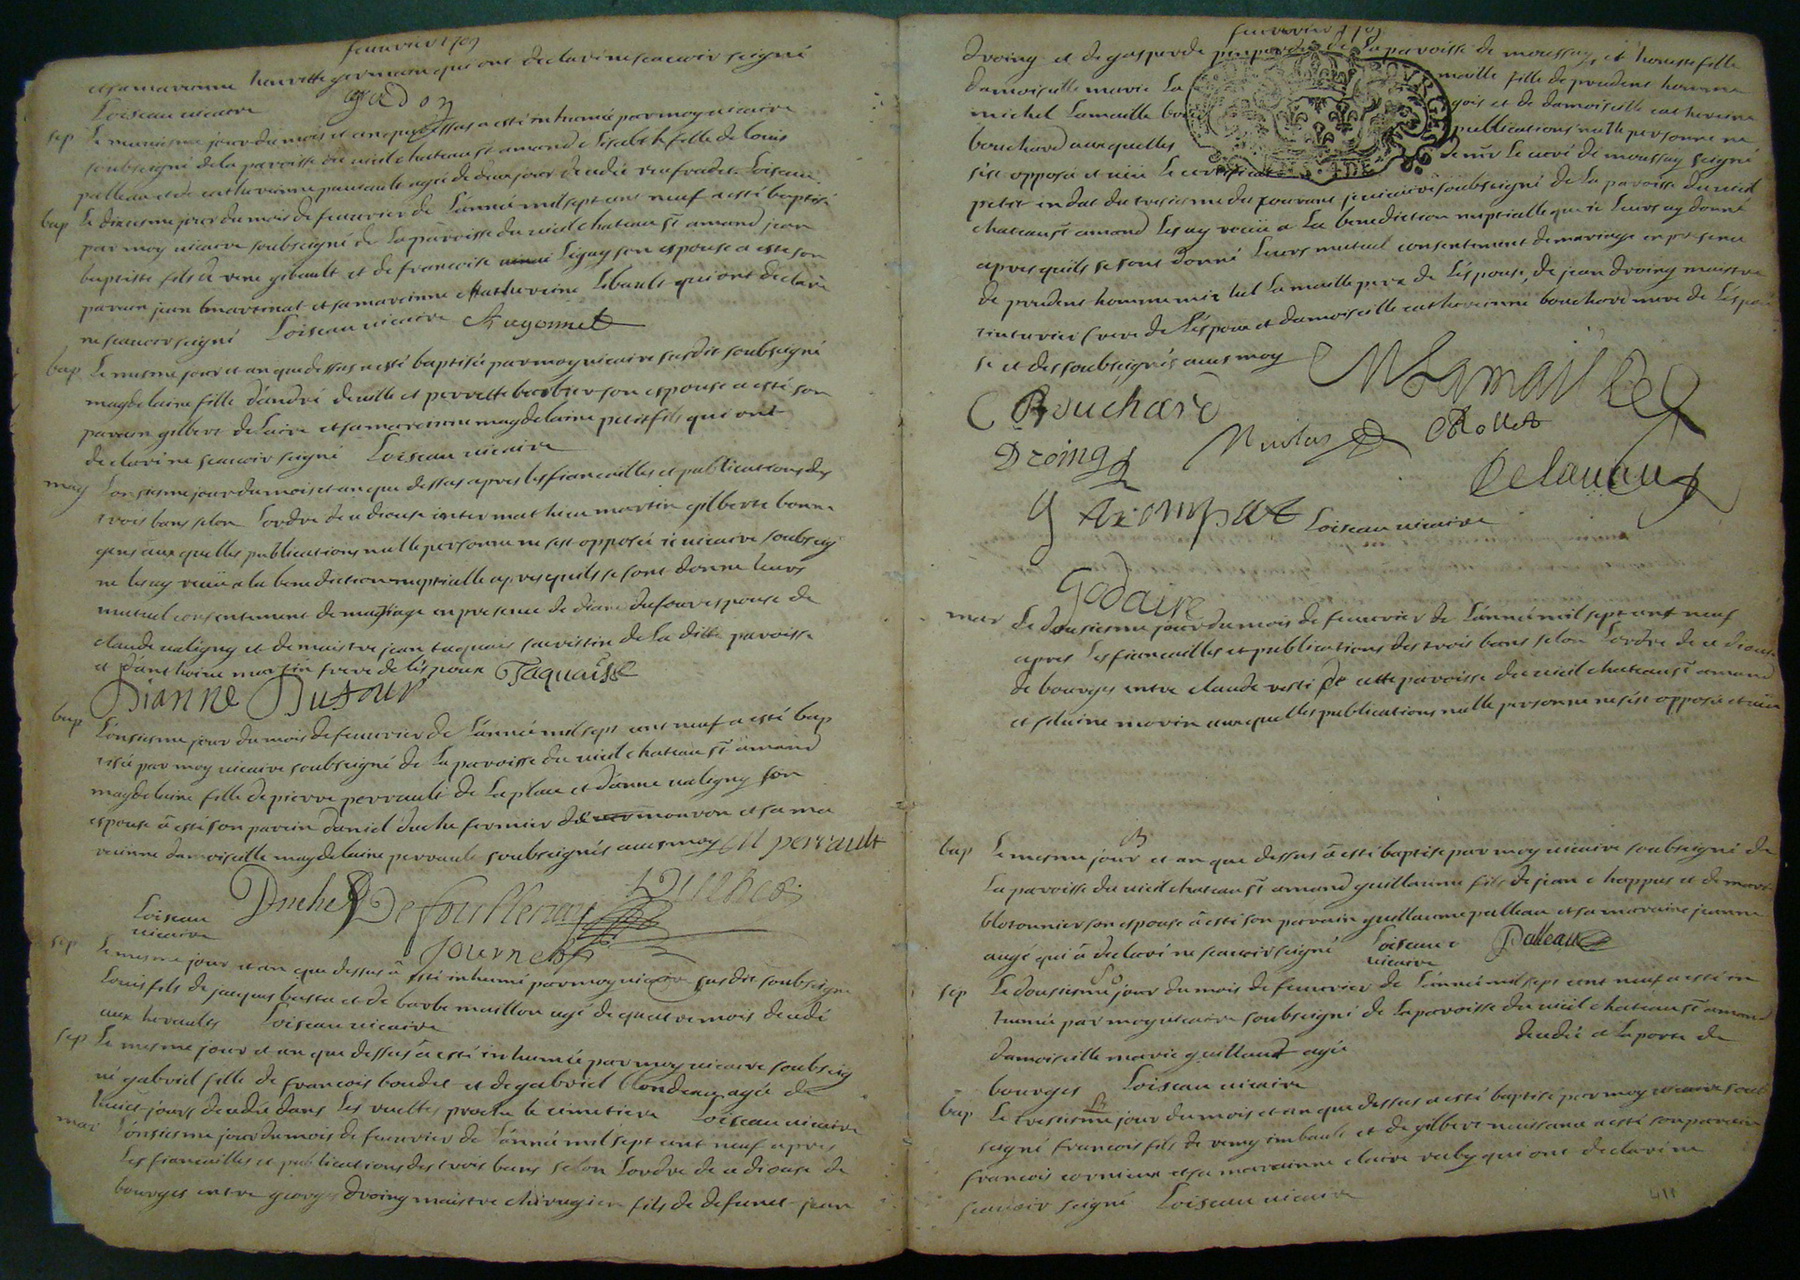 feuvrier 1709
et sa maraienne henriette germain qui ont declaré ne scavoir seigné
Loiseau vicaire
sep Le mesme jour du mois et an que dessus a esté inhumé par moy vicaire
soubseigné de la paroisse du vieil chateau st amand Elisabeth fille de louis
palleau et de catherinne pauvault agée de deux jour
bap Le dixiesme jour du mois de feuvrier de L'année mil sept cens neuf a esté baptisé
par moy vicaire soubseigné de La paroisse du vieil chateau st amand jean
baptiste fils de rene gibault et de francoise Ligny son espouse a esté son
parain jean bmartinat et sa mareinne Catherine Libault qui ont declaré
ne scavoir seigné Loiseau vicaire Augonnet
bap Le mesme jour et an que dessus a esté baptisée par moy vicaire susdit soubseigné
magdelaine fille d'andré deville et perrette barbier son espouse a esté son
parain gilbert delaire et sa mareinne magdelaine petitfils qui ont
declaré ne scavoir seigné Loiseau vicaire
mag L'onsiesme jour du mois et an que dessus apres les fiancailles et publications des
trois bans selon L'ordre de ce diocese entre mathieu martin gilberte bonne
gens aux quelles publications nulle personne ne s'est opposée je vicaire soubseig
né les ay receu a la benediction nuptialle apres quils se sont donné leurs
mutuel consentement de mariage en presence de diane dufour espouse de
claude valigny et de maistre jean taquais sacristin de La ditte paroisse
et d'anthoine martin frere de l'epoux Taquaisse
Dianne Dufour
bap L'onsiesme jour du mois de feuvrier de L'année mil sept cent neuf a esté bap
tisée par moy vicaire soubseigné de La paroisse du vieil chateau st amand
magdelaine fille de pierre perrault de La place et d'anne valigny son
espouse a esté son parein daniel duché fermier de monron et sa ma
reinne damoiselle magdelaine perrault soubseignés avec moy M perrault
Duché
Loiseau
vicaire
Journeth
sep Le mesme jour et an que dessus a esté inhumé par moy vicaire susdit soubseigné
Louis fils de jacques basta et de barbe maillon agé de quatre mois decedé
aux heraults Loiseau vicaire
sep Le mesme jour et an que dessus a esté inhumée par moy vicaire soubseig
né gabriel fille de francois boudet et de gabriel blondeau agée de
huict jours decedée dans Les ruelles proche le cimetiere Loiseau vicaire
mar L'onsiesme jour du mois de feuvrier de L'année mil sept cent neuf apres
Les fiancailles et publications des trois bans selon L'ordre de ce diocese de
bourges entre georges droing maistre chirugien fils de defunct jean
feuvrier 1709
droing et de gasparde de La paroisse de moussay, et honeste fille
damoiselle marie La maille fille de prudent homme
michel Lamaille bourgois et de damoiselle catherine
bouchard aux quelles publications nulle personne ne
s'est opposée et veu Le certificat de mr Le curé de moussay seigné
petit en dat du treisiesme du courant je vicaire soubseigné de La paroisse du vieil
chateau st amand Les ay receu a La benediction nuptialle que je Leurs ay donné
apres quils se sont donné Leurs mutuel consentement de mariage en presence
de prudent homme michel Lamaille pere de L'espouse, de jean droing maistre
tinturier frere de L'espoux et damoiselle catherinne bouchard mere de L'espou
se et des soubseignés avec moy M Lamaille
C Bouchard
Droing Nicolas Rollet
Delaveau
G Trompat Loiseau vicaire
Godaire
mar Le dousiesme jour du mois de feuvrier de L'année mil sept cent neuf
apres Les fiancailles et publications des trois bans selon L'ordre de ce diocese
de bourges entre claude de cette paroisse du vieil chateau st amand
et morin aux quelles publications nulle personne ne s'est opposée et
bap Le mesme jour et an que dessus a esté baptisé par moy vicaire soubseigné de
La paroisse du vieil chateau st amand guillaume fils de jean chappus et de marie
blotonnier son espouse a esté son parrain guillaume palleau et sa maraine jeanne
augé qui a declaré ne scavoir seigné Loiseau Palleau
vicaire
sep Le dousiesme jour du mois de feuvrier de L'année mil sept cent neuf a esté in
humée par moy vicaire soubseigné de La paroisse du vieil chateau st amand
damoiselle marie guillaut agée decedée a La porte de
bourges Loiseau vicaire
bap Le tresiesme jour du mois et an que dessus a esté baptisé par moy vicaire soub
seigné francois fils de remy imbault et de gilberte a esté son parein
francois cornieux et sa marainne claire qui ont declaré ne
scavoir seigné Loiseau vicaire